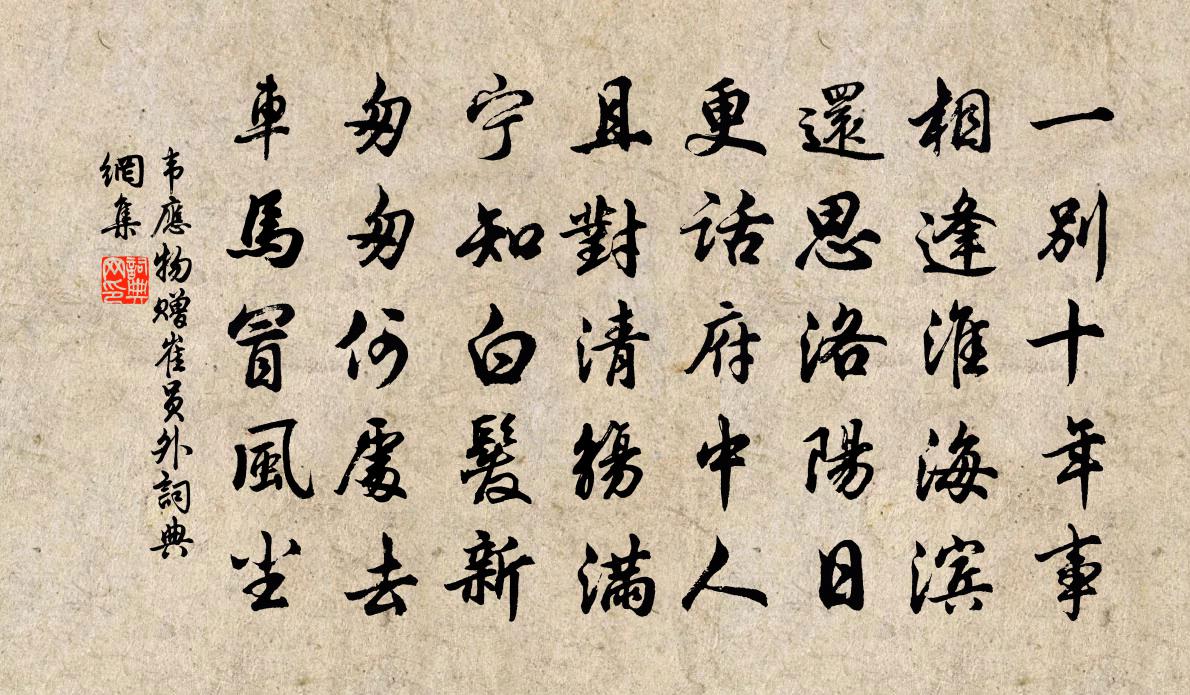 一别十年事
相逢淮海滨
還思洛陽日
更話府中人
且對清觴滿
宁知白髮新
匆匆何處去
車馬冒風尘
韦應物赠崔員外詞典
網集
詞典
网印